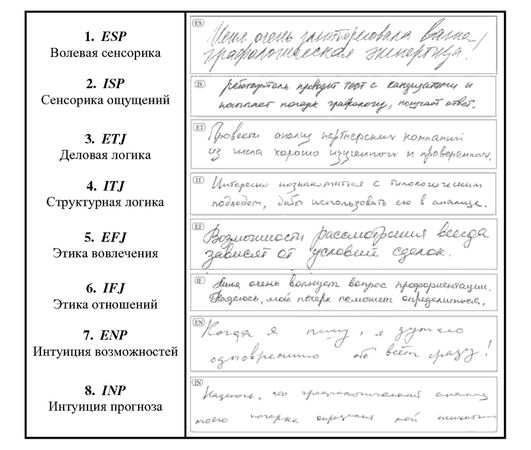 1. ESP
Волевая сенсорика
ES
Меня очень заинтересовала Ваша
графологическая экспертиза!
2. ISP
Сенсорика ощущений
IS
Работодатель проводит тест с кандидатами и
посылает почерк графологу, получает ответ.
3. ETJ
Деловая логика
ET
Провести анализ партнерских компаний
из числа хорошо изученных и проверенных.
4. ITJ
Структурная логика
IT
Интересно познакомиться с типологическим
подходом, дабы использовать его в анализе.
5. EFJ
Этика вовлечения
EF
Возможности рассмотрения всегда
зависят от условий сделок.
6. IFJ
Этика отношений
IF
Меня очень волнует вопрос профориентации.
Надеюсь, мой почерк поможет определиться.
7. ENP
Интуиция возможностей
EN
Когда я пишу, я думаю
одновременно обо всём сразу!
8. INP
Интуиция прогноза
IN
Надеюсь, что графологический анализ
моего почерка определит мой